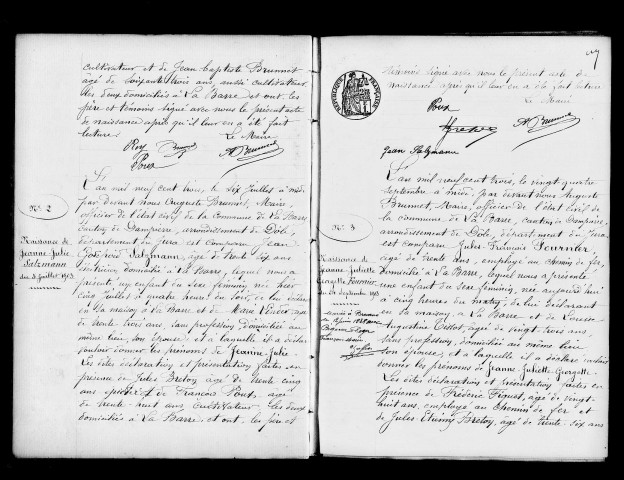 cultivateur et de Jean Baptiste Brunnet
agé de soixante trois ans, aussi cultivateur
les deux domiciliés à La Barre et ont les
père et témoins signé avec nous le présent acte
de naissance après qu'il leur en a été fait
lecture. Le Maire
Roy Brunnet
Poux A Brunnet
N° 2
Naissance de
Jeanne Julie
Salzmann
du 5 juillet 1903
L'an mil neuf cent trois, le six Juillet à midi
par devant Nous Auguste Brunnet, Maire,
officier de l'état civil de la Commune de La Barre
Canton de Dampierre, arrondissement de Dôle,
département du Jura est comparu Jean
Salzmann, agé de trente six ans
domicilié à La Barre, lequel nous a
présenté un enfant du sexe féminin né hier
cinq juillet à quatre heures du soir, ce lui déclarant
en sa maison à La Barre et de Marie
de trente trois ans, sans profession, domiciliée au
même lieu, son épouse; et à laquelle il a déclaré
vouloir donner les prénoms de Jeanne-Julie
Les dites déclaration et présentation faites en
présence de Jules Bretoy agé de trente cinq
ans et de François Poux, agé
de trente huit ans, cultivateur les deux
domiciliés à La Barre et ont les père et
témoins signé avec nous le présent acte de
naissance après qu'il leur en a été fait lecture
Le Maire
Poux
A Brunnet
Jean Salzmann
N° 3
Naissance de
Jeanne-Juliette
Georgette Fournier
du 24 septembre 1903
L'an mil neuf cent trois, le vingt quatre
septembre à midi, par devant nous Auguste
Brunnet, Maire, officier de l'état civil de
la commune de La Barre, canton de Dampierre,
arrondissement de Dôle, département du Jura
est comparu Jules-François Fournier
agé de trente ans, employé au chemin de fer
domicilié à La Barre, lequel nous a présenté
une enfant du sexe féminin, née aujourd'hui
à cinq heures du matin, de lui déclarant
en sa maison, à La Barre et de Louise
Augustine Tissot, agée de vingt trois ans
sans profession, domiciliée au même lieu
son épouse, et à laquelle il a déclaré vouloir
donner les prénoms de Jeanne-Juliette-Georgette.
Les dites déclaration et présentation faites en
présence de Frédéric Piquet, agé de vingt-
huit ans, employé au Chemin de fer et
de Jules Etienne Bretoy, agé de trente-six ans